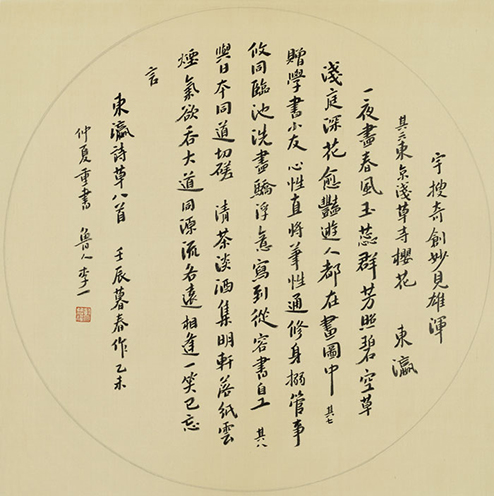 宇搜奇創妙見雄渾
其六東京淺草寺櫻花 東瀛
一夜盡春風玉蕊群芳照碧空草
淺庭深花愈豔遊人都在畫圖中 其七
贈學書小友 心性直將筆性通修身搦管事
攸同臨池洗盡驕浮意寫到從容書自工 其八
與日本同道切磋 清茶淡酒集明軒落紙雲
煙氣欲吞大道同源流各遠相逢一笑已忘
言
東瀛詩草八首 壬辰暮春作乙未
仲夏重書 魯人李一